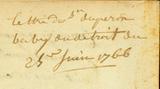 lettre du Sr. duperon
baby du detroit du
25e Juin 1766